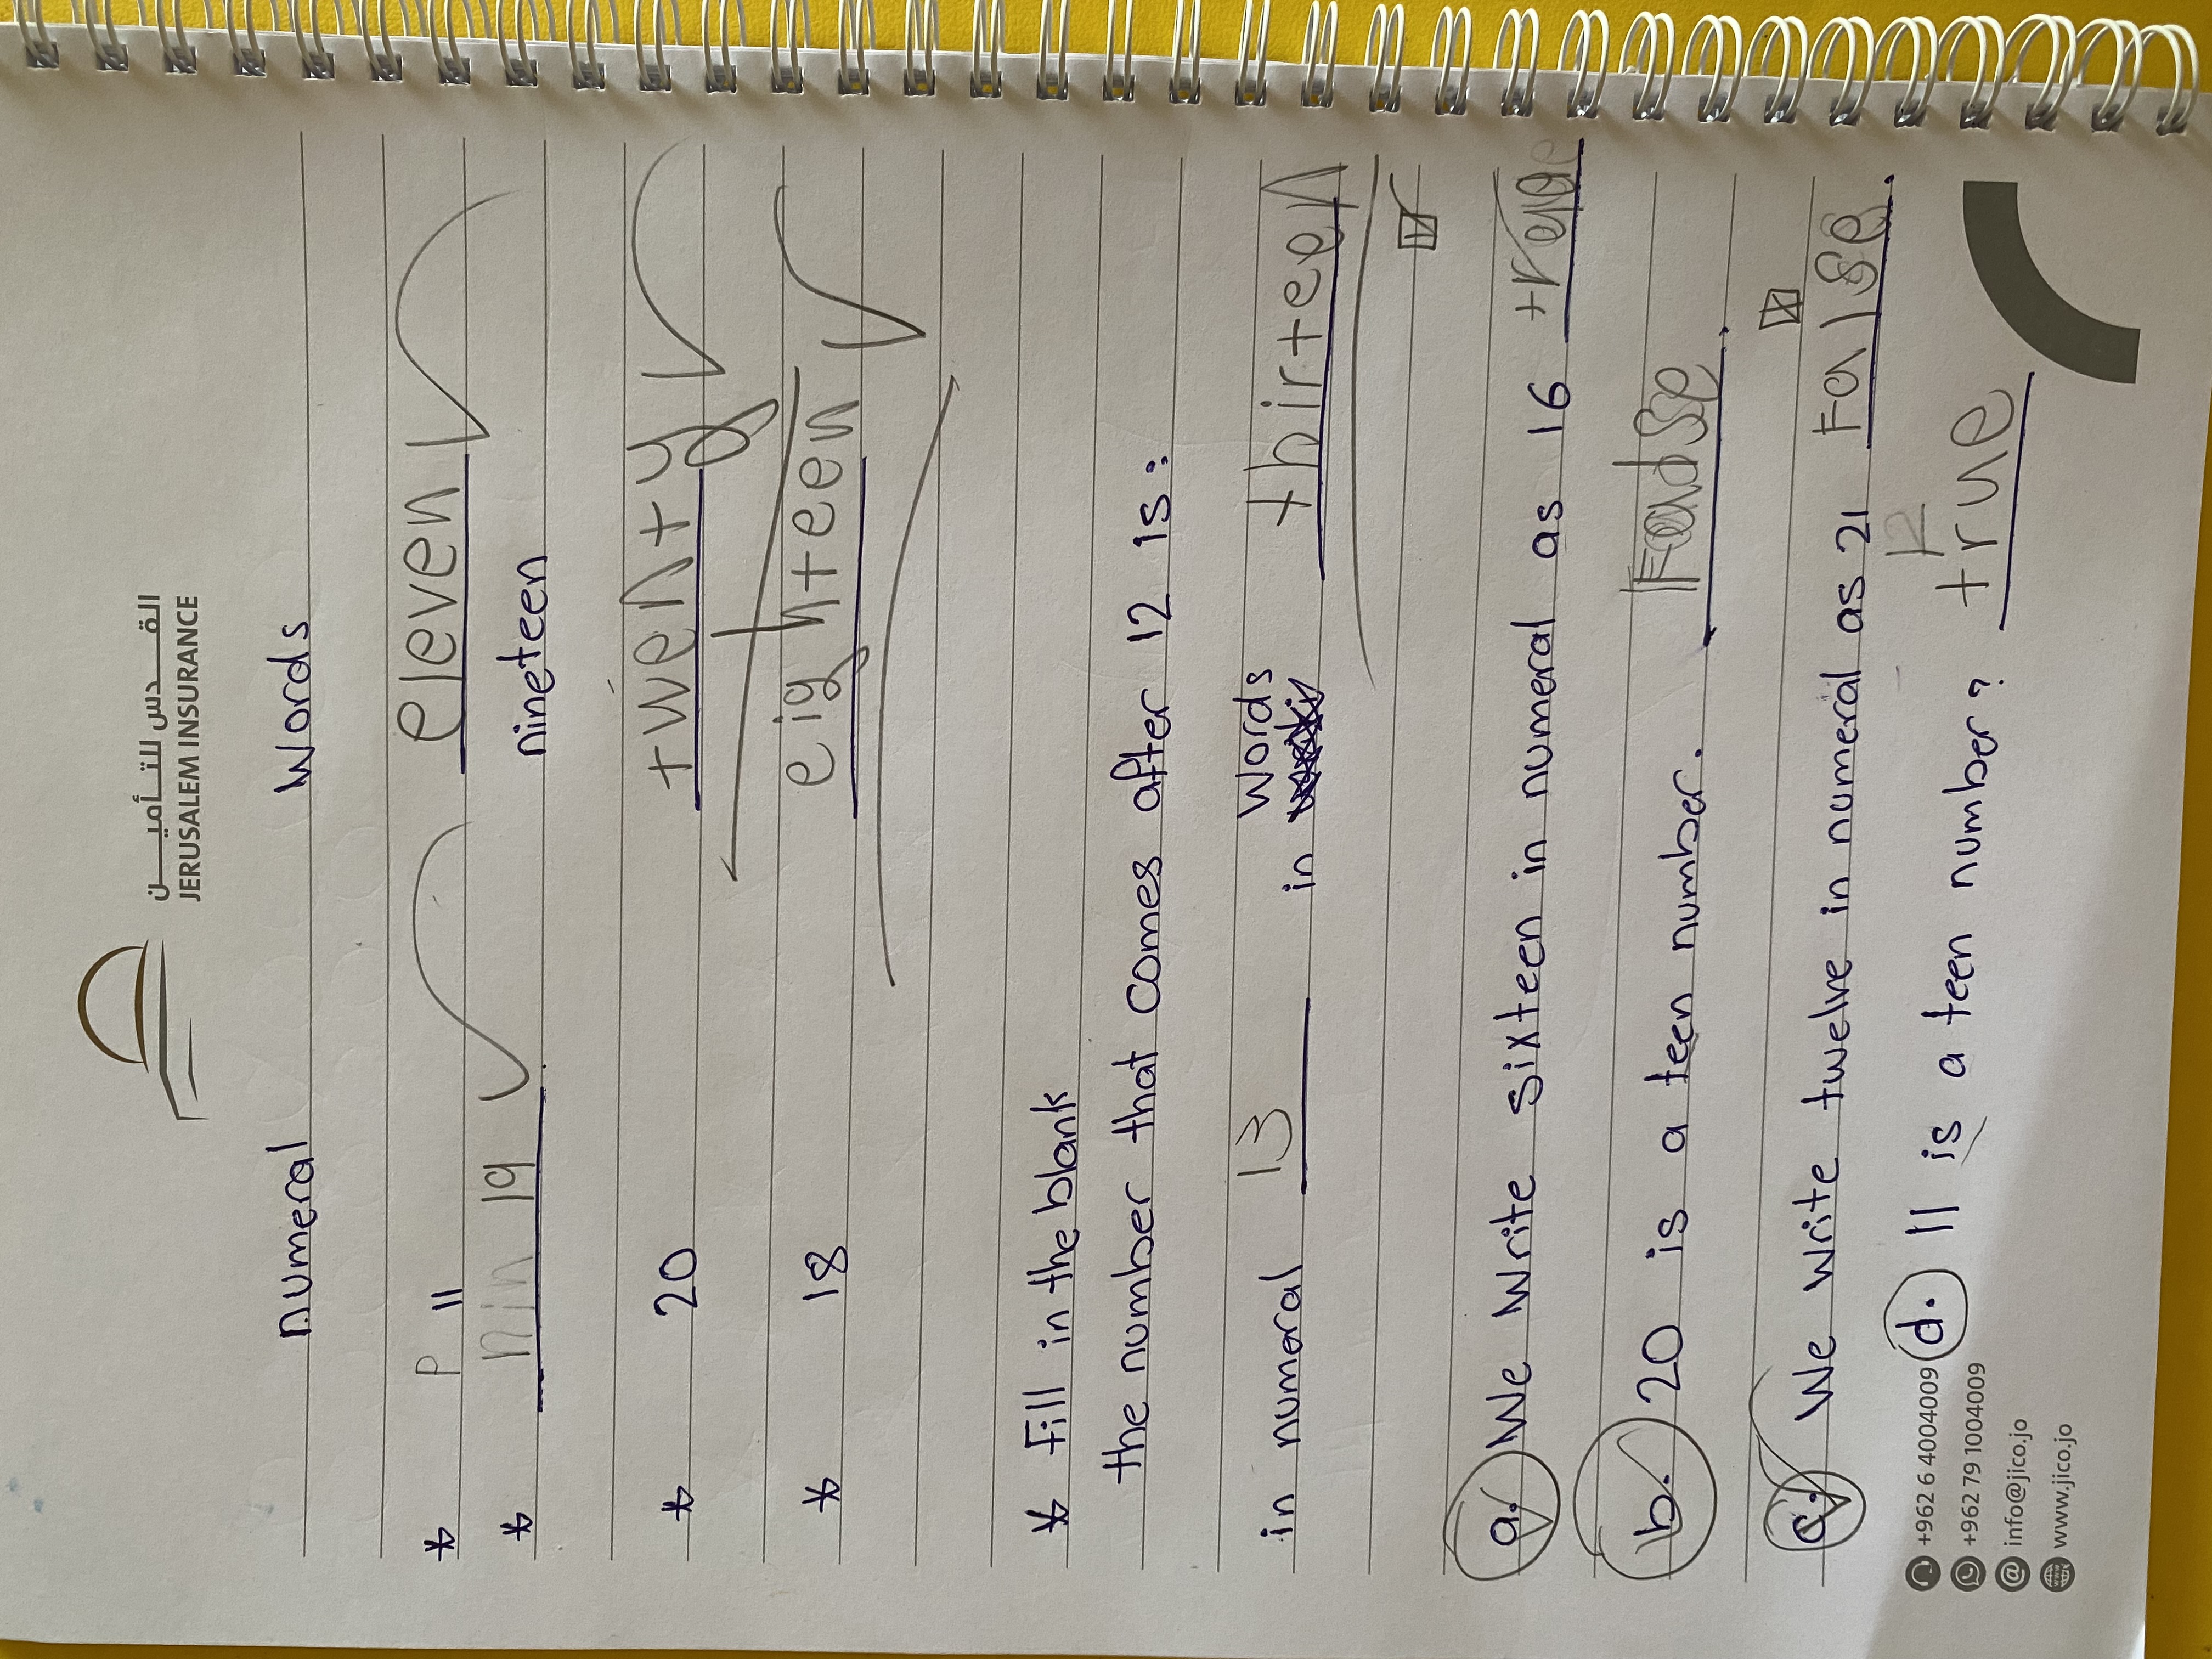 القدس للتأمين
JERUSALEM INSURANCE
numeral words
* 11 eleven
* nin 19 nineteen
* 20 twenty
* 18 eighteen
* Fill in the blank
the number that comes after 12 is:
in numeral 13 in words thirteen
a. We write sixteen in numeral as 16
b. 20 is a teen number.
c. We write twelve in numeral as 21 False.
12
d. 11 is a teen number? true
+962 6 4004009
+962 79 1004009
info@jico.jo
www.jico.jo